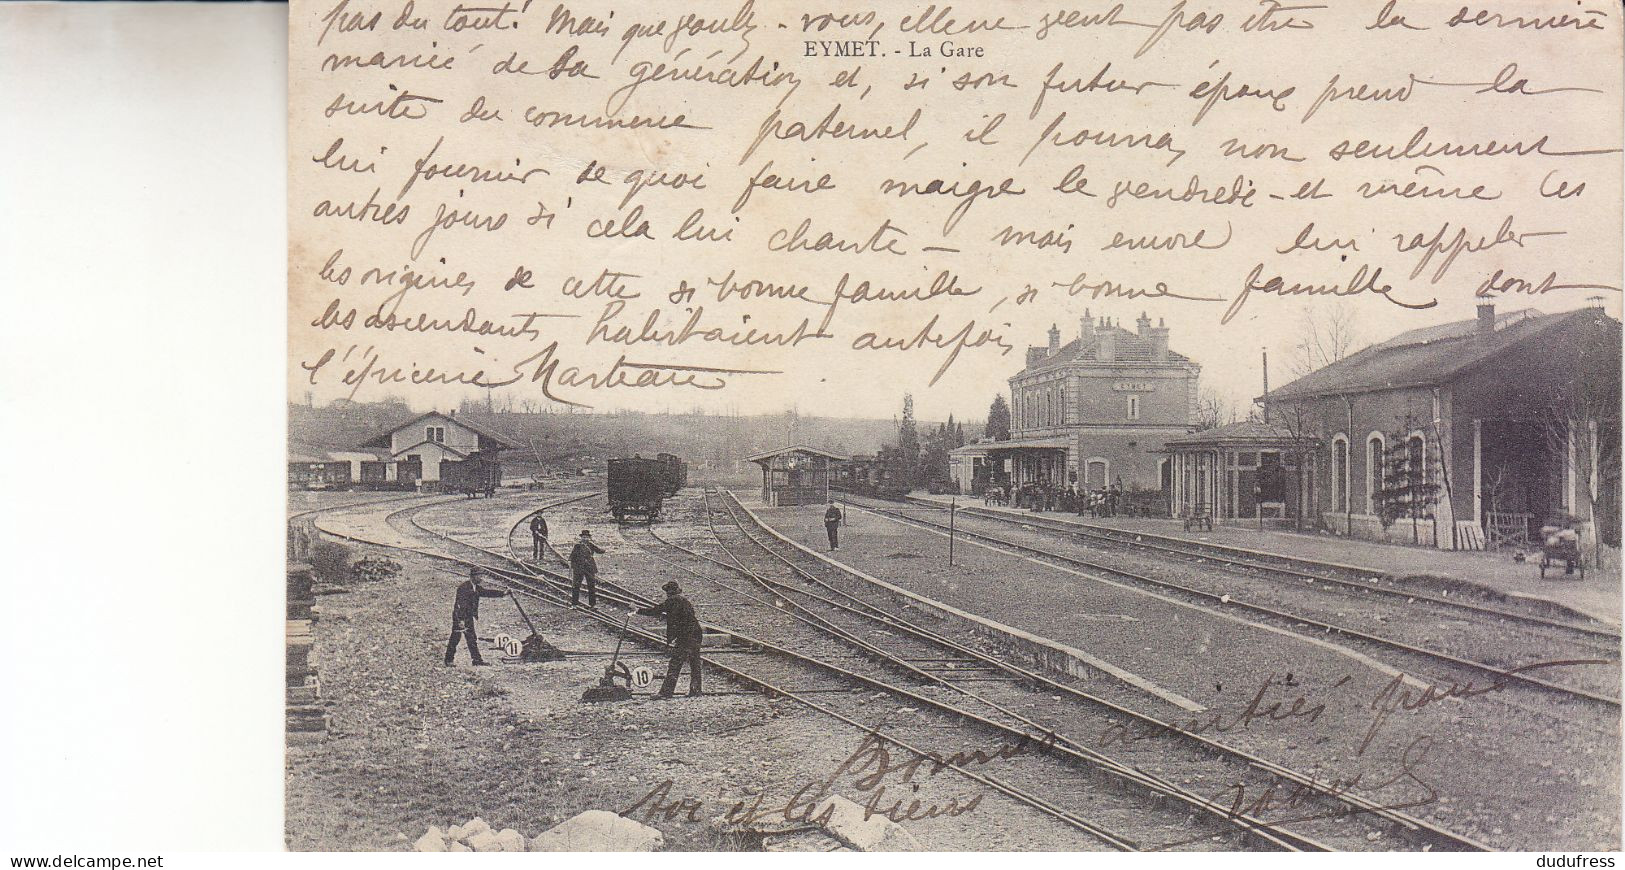 pas du tout! Mais que voulez-vous, elle ne veut pas être la dernière
EYMET. - La Gare
mariée de sa génération et, si son futur époux prend la
suite du commerce paternel, il pourra, non seulement
lui fournir de quoi faire maigre le vendredi - et même les
autres jours si cela lui chante - mais encore lui rappeler
les origines de cette si bonne famille, si bonne famille dont
les ascendants habitaient autrefois
l'épicerie
EYMET
12
11
10
Bonnes amitiés pour
toi et les tiens